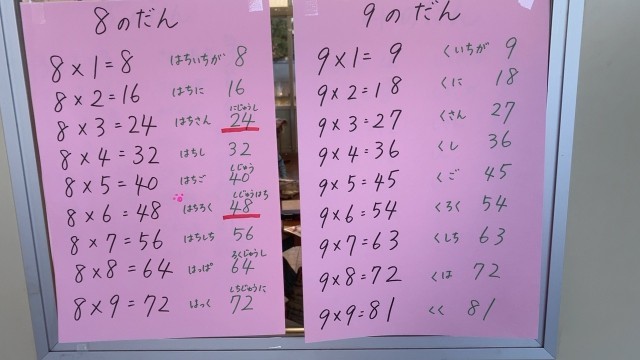 8のだん
8×1=8 はちいちが 8
8×2=16 はちに 16
にじゅうし
8×3=24 はちさん 24
8×4=32 はちし 32
しじゅう
8×5=40 はちご 40
しじゅうはち
8×6=48 はちろく 48
8×7=56 はちしち 56
ろくじゅうし
8×8=64 はっぱ 64
しちじゅうに
8×9=72 はっく 72
9のだん
9×1=9 くいちが 9
9×2=18 くに 18
9×3=27 くさん 27
9×4=36 くし 36
9×5=45 くご 45
9×6=54 くろく 54
9×7=63 くしち 63
9×8=72 くは 72
9×9=81 くく 81